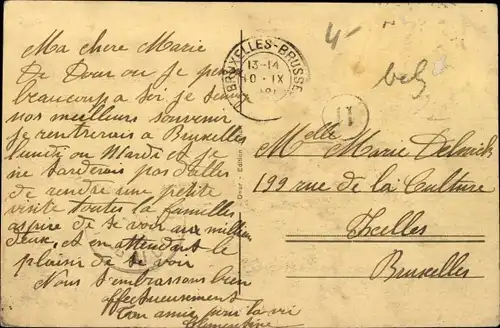 Ma chere Marie
De Dour ou je pense
beaucoup a toi je t'envoie
nos meilleurs souvenir
je rentrerais a Bruxelles
lundi ou Mardi et je
ne tarderais pas d'aller
de rendre une petite
visite toutes la familles
aspire de te voir au milieu
deux, et en attendant le
plaisir de te voir
Nous t'embrassons bien
affectueusement
Ton amie pour la vie
Clementine
4-
belg
BRUXELLES-BRUSSEL
13-14
10-IX
11
Melle Marie
199 rue de la Culture
Ixelles
Bruxelles